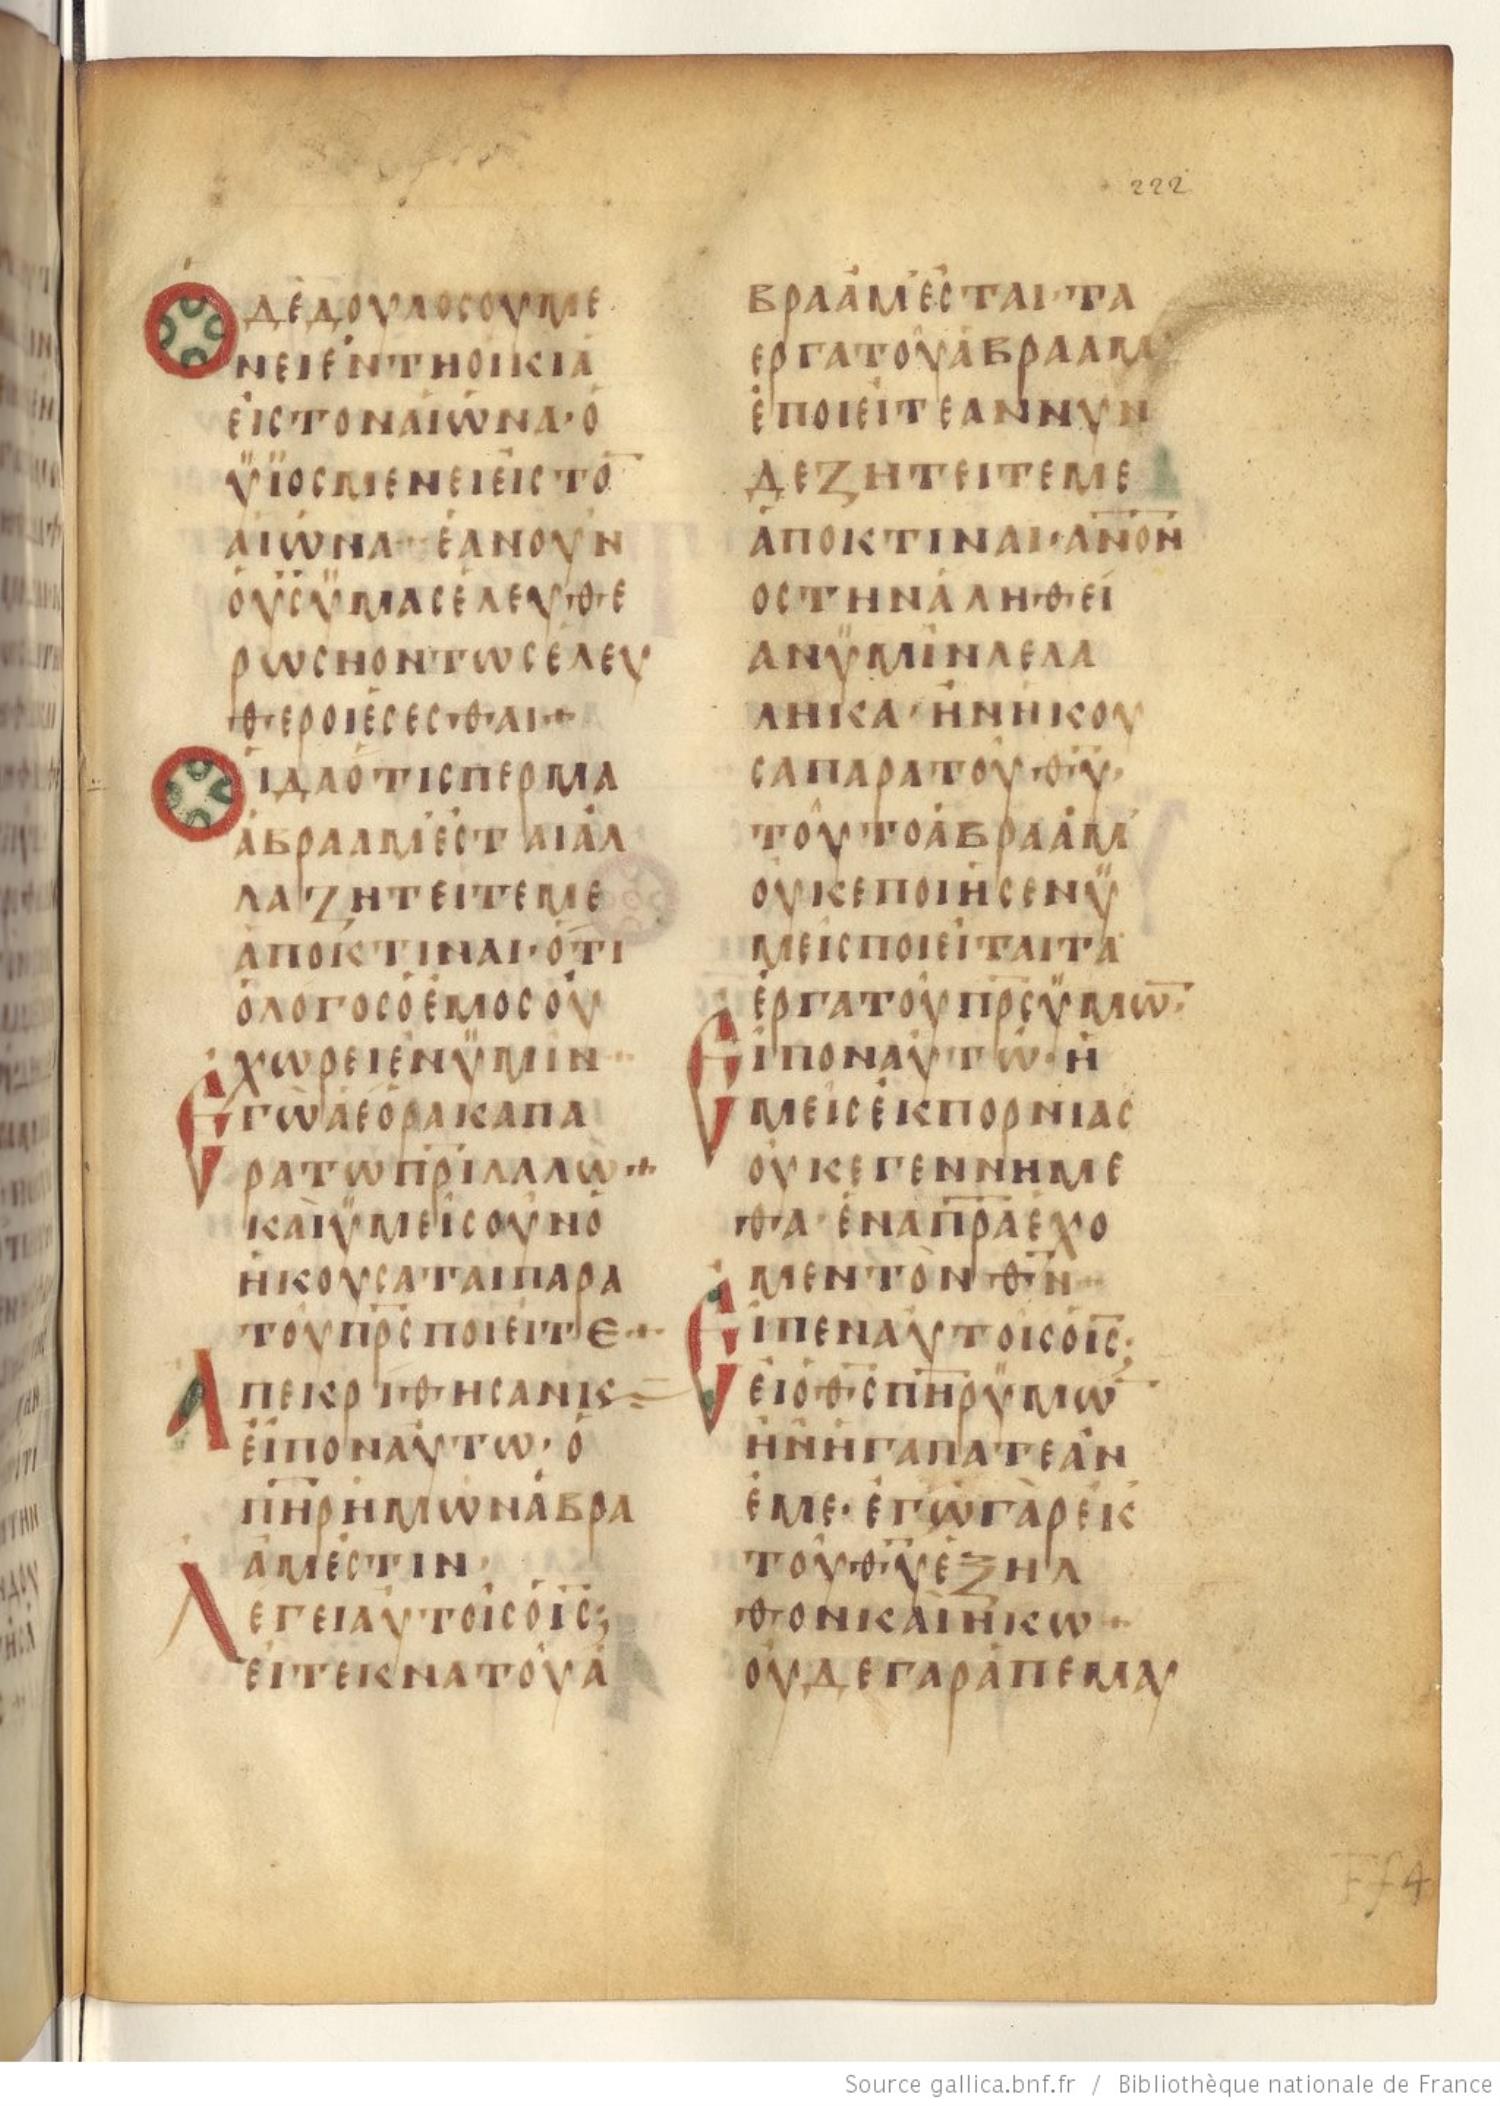 222
Ὁ ΔΕ ΔΟΥΛΟС ΟΥ ΜΕ
ΝΕΙ ΕΝ ΤΗ ΟΙΚΙΑ
ΕΙС ΤΟΝ ΑΙΩΝΑ· Ο
ΫΪΟС ΜΕΝΕΙ ΕΙС ΤΟ̅
ΑΙΩΝΑ· ΕΑΝ ΟΥΝ
ΟΥС ΫΜΑС ΕΛΕΥΘΕ
ΡΩСΗ ΟΝΤΩС ΕΛΕΥ
ΘΕΡΟΙ ΕСΕСΘΑΙ·+
ΟΙΔΑ ΟΤΙ СΠΕΡΜΑ
ΑΒΡΑΑΜ ΕСΤΑΙ ΑΛ
ΛΑ ΖΗΤΕΙΤΕ ΜΕ
ΑΠΟΚΤΙΝΑΙ· ΟΤΙ
Ο ΛΟΓΟС Ο ΕΜΟС ΟΥ
ΧΩΡΕΙ ΕΝ ΫΜΙΝ··
ΕΓΩ Α ΕΟΡΑΚΑ ΠΑ
ΡΑ ΤΩ Π̅Ρ̅Ι ΛΑΛΩ·+
ΚΑΙ ΫΜΕΙС ΟΥΝ Ο
ΗΚΟΥСΑΤΑΙ ΠΑΡΑ
ΤΟΥ Π̅Ρ̅С ΠΟΙΕΙΤΕ·+
ΑΠΕΚΡΙΘΗСΑΝ Κ
ΕΙΠΟΝ ΑΥΤΩ· Ο
Π̅Η̅Ρ ΗΜΩΝ ΑΒΡΑ
ΑΜ ΕСΤΙΝ·
ΛΕΓΕΙ ΑΥΤΟΙС Ο Ι̅С̅;
ΕΙ ΤΕΚΝΑ ΤΟΥ Α
ΒΡΑΑΜ ΕСΤΑΙ· ΤΑ
ΕΡΓΑ ΤΟΥ ΑΒΡΑΑΜ
ΕΠΟΙΕΙΤΕ ΑΝ ΝΥΝ
ΔΕ ΖΗΤΕΙΤΕ ΜΕ
ΑΠΟΚΤΙΝΑΙ· Α̅Ν̅Ο̅Ν
ΟС ΤΗΝ ΑΛΗΘΕΙ
ΑΝ ΫΜΙΝ ΛΕΛΑ
ΛΗΚΑ· ΗΝ ΗΚΟΥ
СΑ ΠΑΡΑ ΤΟΥ Θ̅Υ̅·
ΤΟΥΤΟ ΑΒΡΑΑΜ
ΟΥΚ ΕΠΟΙΗСΕΝ Ϋ
ΜΕΙС ΠΟΙΕΙΤΑΙ ΤΑ
ΕΡΓΑ ΤΟΥ Π̅Ρ̅С ΫΜΩ̅·
ΕΙΠΟΝ ΑΥΤΩ· Η
ΜΕΙС ΕΚ ΠΟΡΝΙΑС
ΟΥΚ ΕΓΕΝΝΗΜΕ
ΘΑ· ΕΝΑ Π̅Ρ̅Α ΕΧΟ
ΜΕΝ ΤΟΝ Θ̅Ν̅··
ΕΙΠΕΝ ΑΥΤΟΙС Ο Ι̅С̅;
ΕΙ Ο Θ̅С̅ Π̅Η̅Ρ ΫΜΩ̅
ΗΝ ΗΓΑΠΑΤΕ ΑΝ
ΕΜΕ· ΕΓΩ ΓΑΡ ΕΚ
ΤΟΥ Θ̅Υ̅ ΕΞΗΛ
ΘΟΝ ΚΑΙ ΗΚΩ·+
ΟΥΔΕ ΓΑΡ ΑΠ ΕΜΑΥ
Ff4
Source gallica.bnf.fr / Bibliothèque nationale de France